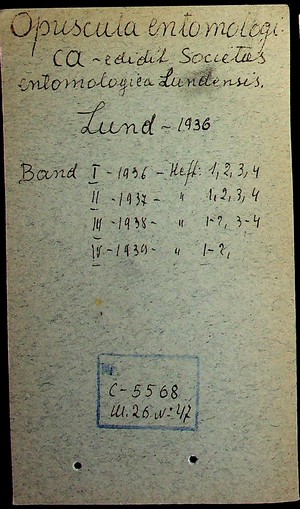 Opuscula entomologi-
ca - edidit Societas
entomologica Lundensis.
Lund - 1936
Band I - 1936 - Heft: 1, 2, 3, 4
II - 1937 - " 1, 2, 3, 4
III - 1938 - " 1-2, 3-4
IV - 1939 - " 1-2,
C-5568
Ш. 26 № 47